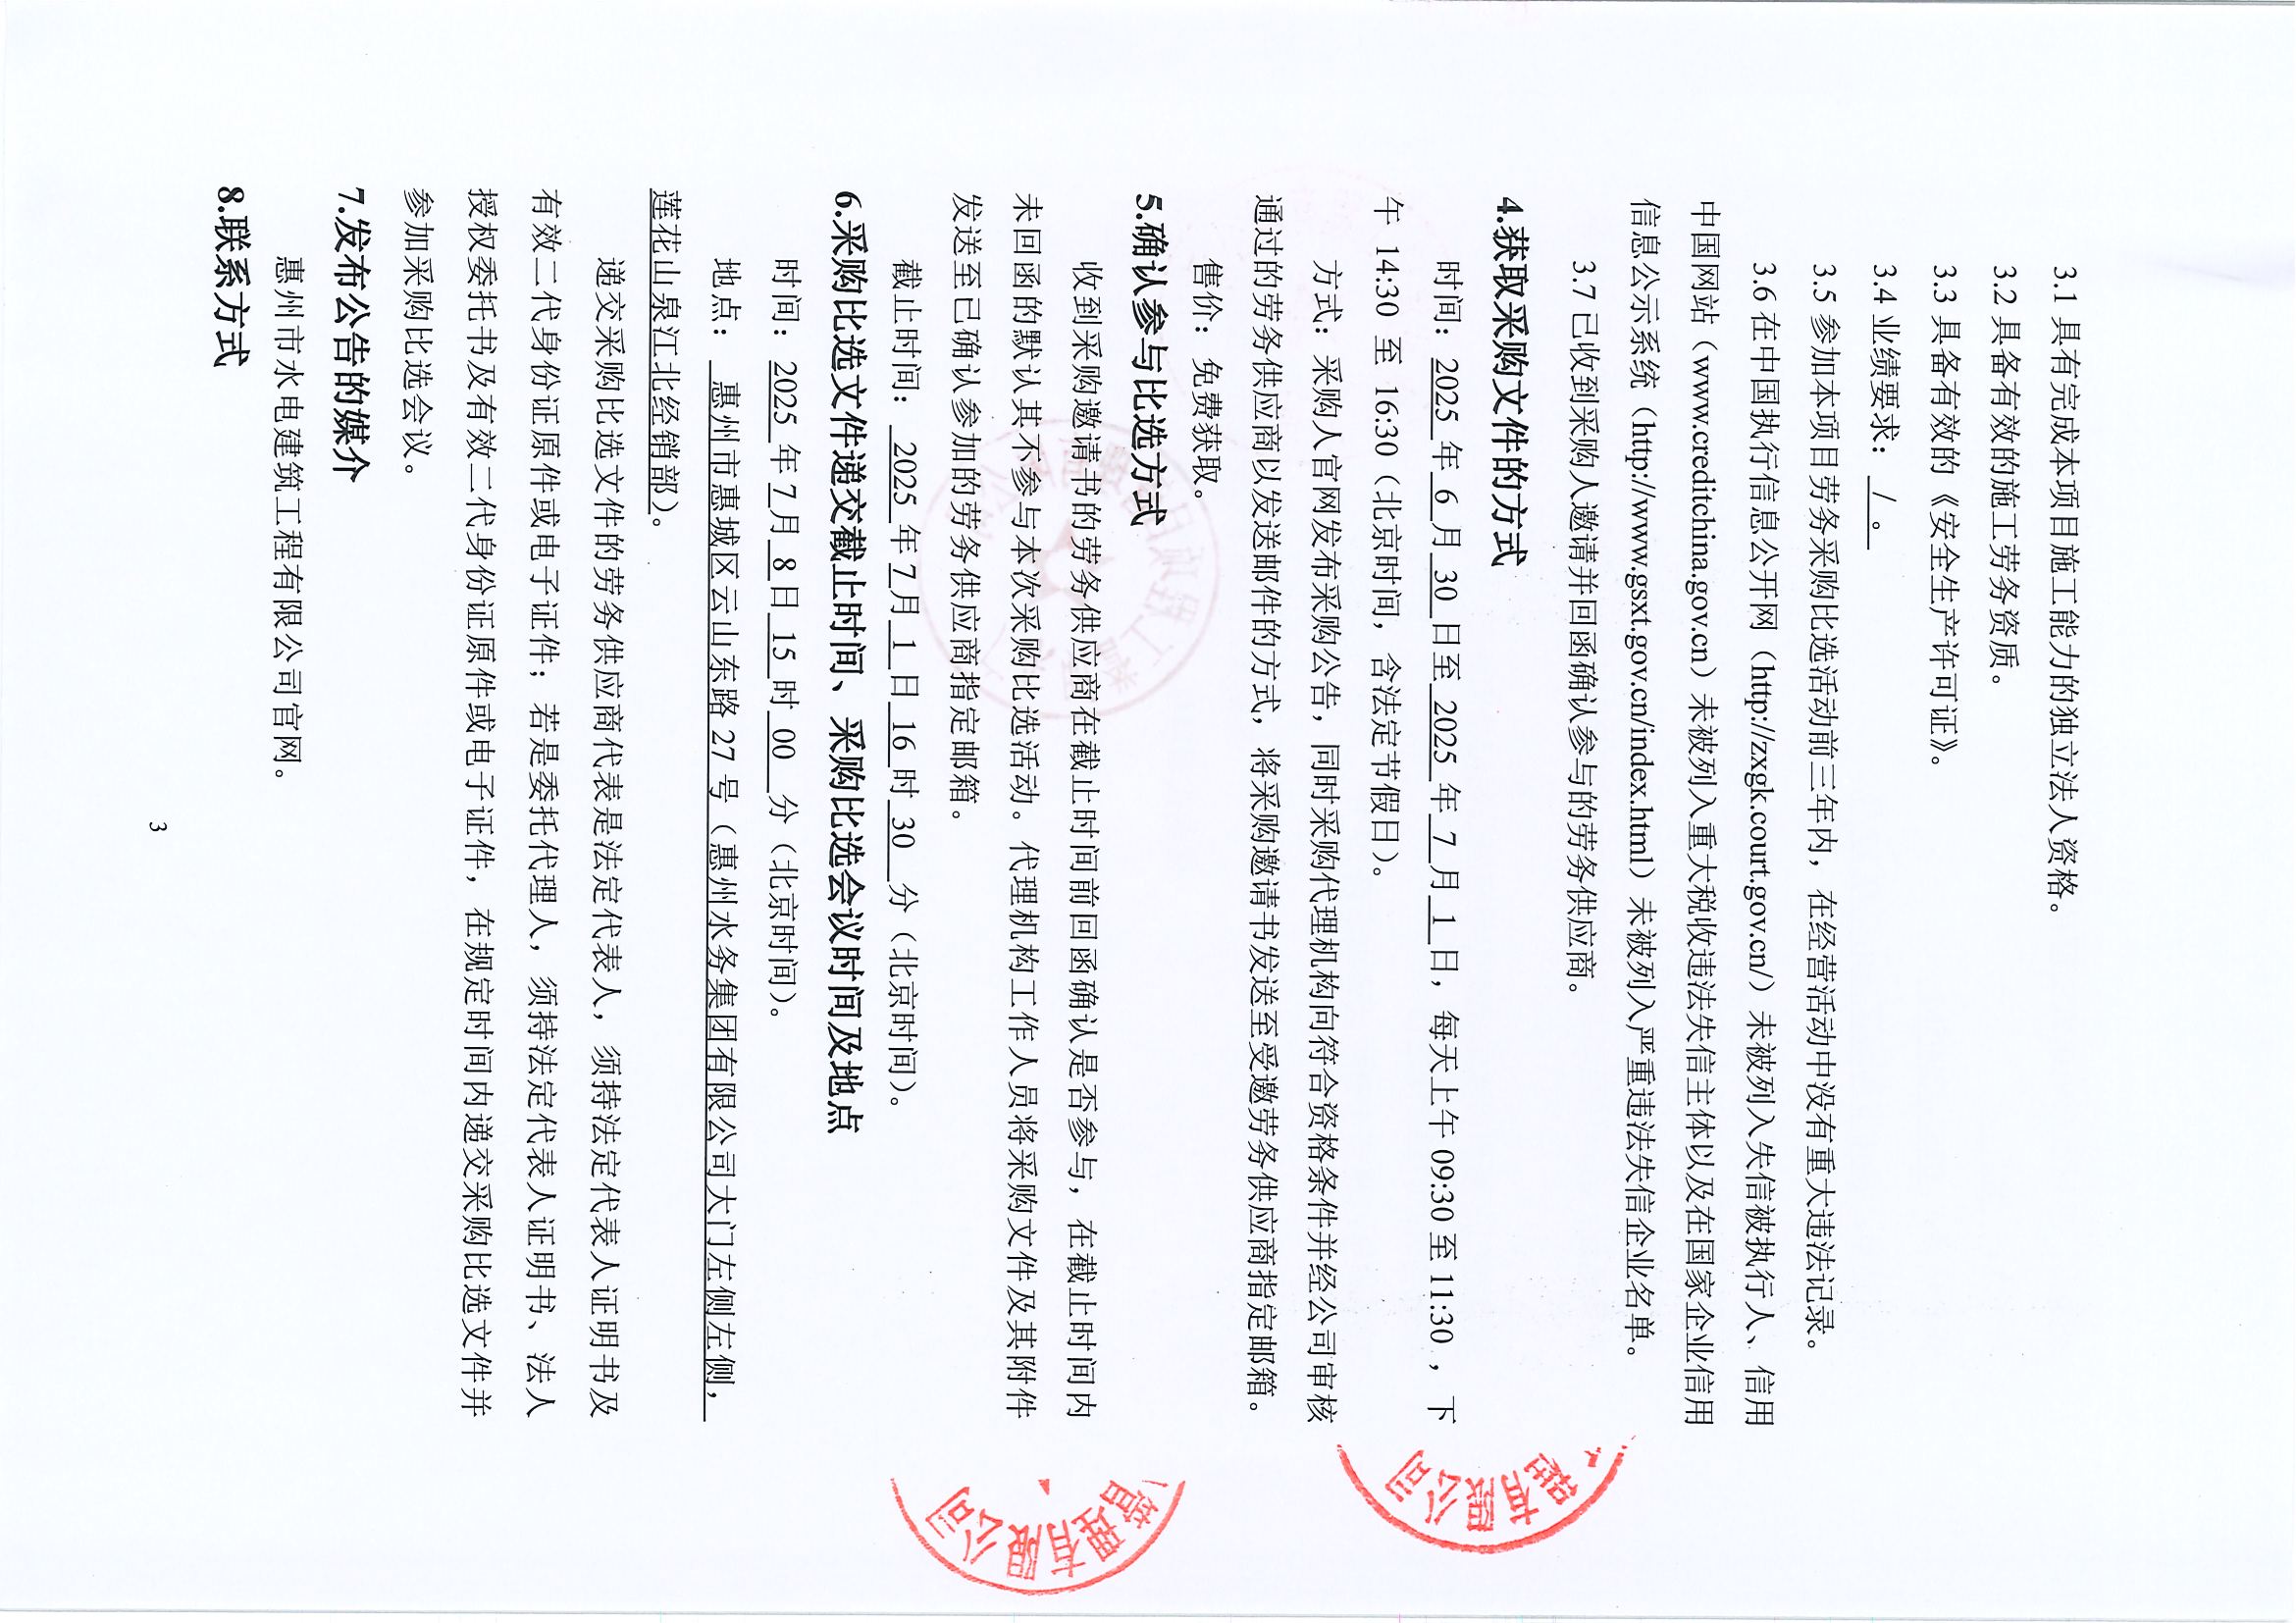 3.1 具有完成本项目施工能力的独立法人资格。
3.2 具备有效的施工劳务资质。
3.3 具备有效的《安全生产许可证》。
3.4 业绩要求： / 。
3.5 参加本项目劳务采购比选活动前三年内，在经营活动中没有重大违法记录。
3.6 在中国执行信息公开网（http://zxgk.court.gov.cn/）未被列入失信被执行人、信用
中国网站（www.creditchina.gov.cn）未被列入重大税收违法失信主体以及在国家企业信用
信息公示系统（http://www.gsxt.gov.cn/index.html）未被列入严重违法失信企业名单。
3.7 已收到采购人邀请并回函确认参与的劳务供应商。
4.获取采购文件的方式
时间：2025 年 6 月 30 日至 2025 年 7 月 1 日，每天上午 09:30 至 11:30 ，下
午 14:30 至 16:30（北京时间，含法定节假日）。
方式：采购人官网发布采购公告，同时采购代理机构向符合资格条件并经公司审核
通过的劳务供应商以发送邮件的方式，将采购邀请书发送至受邀劳务供应商指定邮箱。
售价：免费获取。
5.确认参与比选方式
收到采购邀请书的劳务供应商在截止时间前回函确认是否参与，在截止时间内
未回函的默认其不参与本次采购比选活动。代理机构工作人员将采购文件及其附件
发送至已确认参加的劳务供应商指定邮箱。
截止时间： 2025 年 7 月 1 日 16 时 30 分（北京时间）。
6.采购比选文件递交截止时间、采购比选会议时间及地点
时间：2025 年 7 月 8 日 15 时 00 分（北京时间）。
地点： 惠州市惠城区云山东路 27 号（惠州水务集团有限公司大门左侧左侧，
莲花山泉江北经销部）。
递交采购比选文件的劳务供应商代表是法定代表人，须持法定代表人证明书及
有效二代身份证原件或电子证件；若是委托代理人，须持法定代表人证明书、法人
授权委托书及有效二代身份证原件或电子证件，在规定时间内递交采购比选文件并
参加采购比选会议。
7.发布公告的媒介
惠州市水电建筑工程有限公司官网。
8.联系方式
3
有限公司
管理有限公司